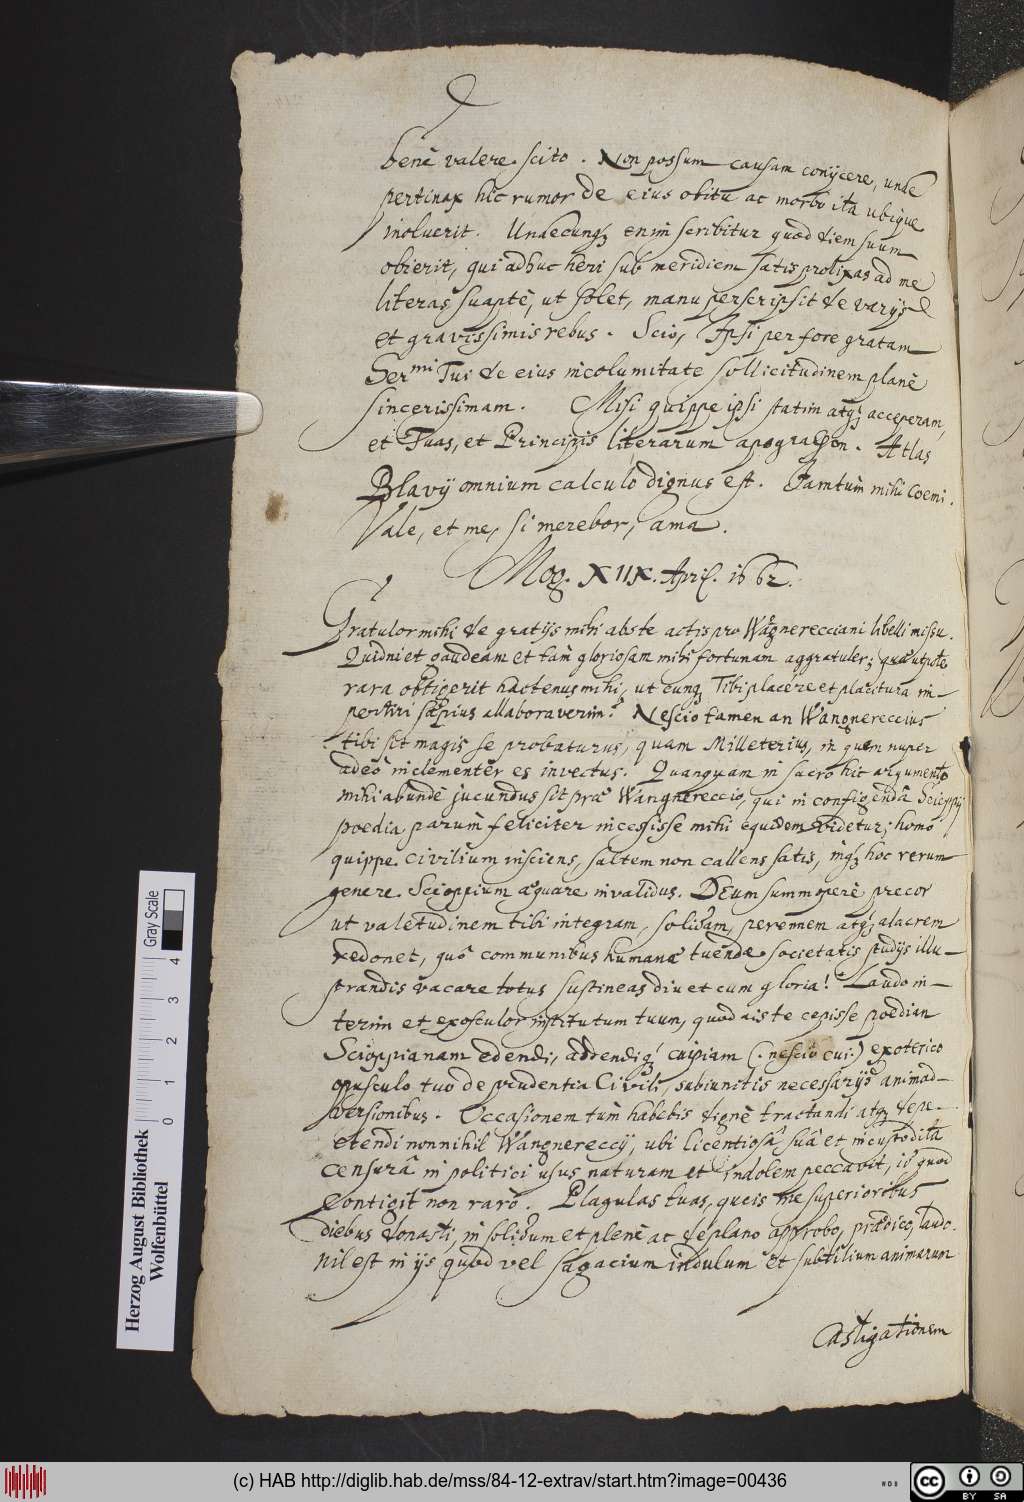 benè valere scito. Non possum causam conijcere, unde
pertinax hic rumor de eius obitu ac morbo ita ubique
inoluerit. Undecunq; enim scribitur quod diem suum
obierit, qui adhuc heri sub meridiem satis prolixas ad me
literas suaptè, ut solet, manu perscripsit de varijs
et gravissimis rebus. Scio, Ipsi per fore gratam
Ser.mi Tui de eius incolumitate sollicitudinem planè
sincerissimam. Misi quippe ipsi statim atq; acceperam,
et Tuas, et Principis literarum apographon. Atlas
Blavij omnium calculo dignus est. Tamtùm mihi coemi.
Vale, et me, si merebor, ama.
Mog. XIIX. April. 1662.
Gratulor mihi de gratijs mihi abs te actis pro Wagnerecciani libelli missu.
Quidni et gaudeam et tam gloriosam mihi fortunam aggratuler; quae utpote
rara obtigerit hactenus mihi, ut cunq; Tibi placere et placitura im-
pertiri saepius allaboraverim? Nescio tamen an Wangnereccius
tibi sit magis se probaturus, quam Milleterius, in quem nuper
adeò inclementèr es invectus. Quanquam in sacro hic argumento
mihi abundè jucundus sit prae Wangnereccio, qui in configendâ Scioppij
poedia parum feliciter incessisse mihi equidem videtur; homo
quippe civilium insciens, saltem non callens satis, inq; hoc rerum
genere Scioppium aequare invalidus. DEum summoperè precor
ut valetudinem tibi integram, solidam, perennem atq; alacrem
redonet, quò communibus humanae tuendae societatis studijs illu-
strandis vacare totus sustineas diu et cum gloria! Laudo in-
terim et exosculor institutum tuum, quod ais te cepisse poedian
Scioppianam edendi, addendiq; cuipiam (. nescio cui.) exoterico
opusculo tuo de prudentia Civili, subiunctis necessarijs animad-
versionibus. Occasionem tùm habebis dignè tractandi atq; depe-
etendi nonnihil Wangnereccij, ubi licentiosâ suâ et incustoditâ
censurâ in politici usus naturam et indolem peccavit, id quod
contigit non rarò. Plagulas tuas, queis me superioribus
diebus donasti, in solidum et plenè ac de plano approbo, praedico, laudo.
Nil est in ijs quod vel sagacium indulum et subtilium animarum
Castigationem
Herzog August Bibliothek
Wolfenbüttel
0 1 2 3 4
Gray Scale
(c) HAB http://diglib.hab.de/mss/84-12-extrav/start.htm?image=00436
cc BY SA